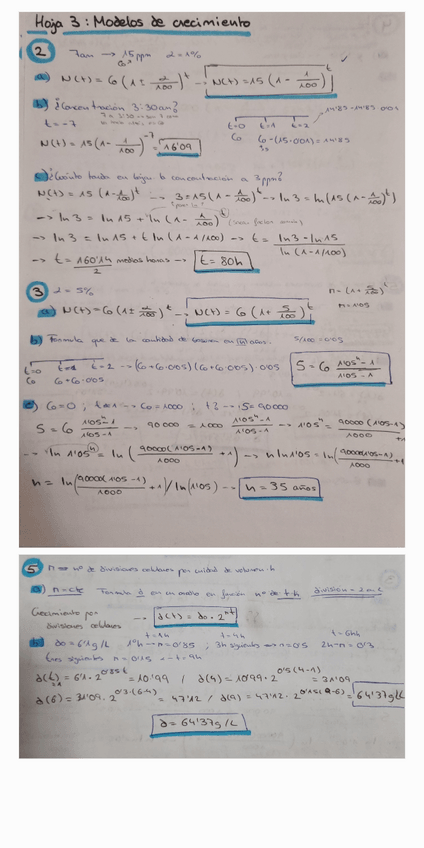 Hoja 3: Modelos de crecimiento
2
7am → 15 ppm α = 1%
a) N(t) = C₀ (1 ± α/100)^t → N(t) = 15 (1 - 1/100)^t
b) ¿Concentración 3:30am?
t = -7
t=0 t=1 t=2
C₀ C₀-(15·0'01) = 14'85
14'85 - 14'85·0'01
N(t) = 15 (1 - 1/100)^-7 = 16'09
c) ¿Cuánto tarda en bajar la concentración a 3ppm?
N(t) = 15 (1 - 1/100)^t → 3 = 15 (1 - 1/100)^t → ln 3 = ln (15 (1 - 1/100)^t)
→ ln 3 = ln 15 + ln (1 - 1/100)^t
→ ln 3 = ln 15 + t ln (1 - 1/100) → t = (ln 3 - ln 15)/(ln (1 - 1/100))
→ t = 160'14/2 medias horas → t = 80h
3
α = 5%
a) N(t) = C₀ (1 ± α/100)^t → N(t) = C₀ (1 + 5/100)^t
n = 1'05
b) Formula que de la cantidad de en n años. 5/100 = 0'05
t=0 t=1 t=2 → (C₀ + C₀·0'05) (C₀ + C₀·0'05)·0'05
C₀ C₀ + C₀·0'05
S = C₀ (1'05^n - 1)/(1'05 - 1)
c) C₀ = 0 ; t = 1 → C₀ = 1000 ; t? → S = 90000
S = C₀ (1'05^n - 1)/(1'05 - 1) → 90000 = 1000 (1'05^n - 1)/(1'05 - 1) → 1'05^n = 90000(1'05-1)/1000 + 1
→ ln 1'05^n = ln (90000(1'05-1)/1000 + 1) → n ln 1'05 = ln (90000(1'05-1)/1000 + 1
n = ln (90000(1'05-1)/1000 + 1) / ln (1'05) → n = 35 años
5
n → nº de divisiones celulares por unidad de volumen·h
a) n = cte Formula d en un medio en función nº de t·h división = 2
Crecimiento por
divisiones celulares → d(t) = d₀ · 2^nt
b) d₀ = 6'1 g/L 1ºh → n = 0'85 ; 3h siguientes → n = 0'5 2h → n = 0'3
t = 1h t = 4h t = 6h
siguientes n = 0'15 → t = 9h
d(1) = 6'1 · 2^0'85·1 = 10'99 / d(4) = 10'99 · 2^0'5(4-1) = 31'09
d(6) = 31'09 · 2^0'3(6-4) = 47'12 / d(9) = 47'12 · 2^0'15(9-6) = 64'37 g/L
d = 64'37 g/L